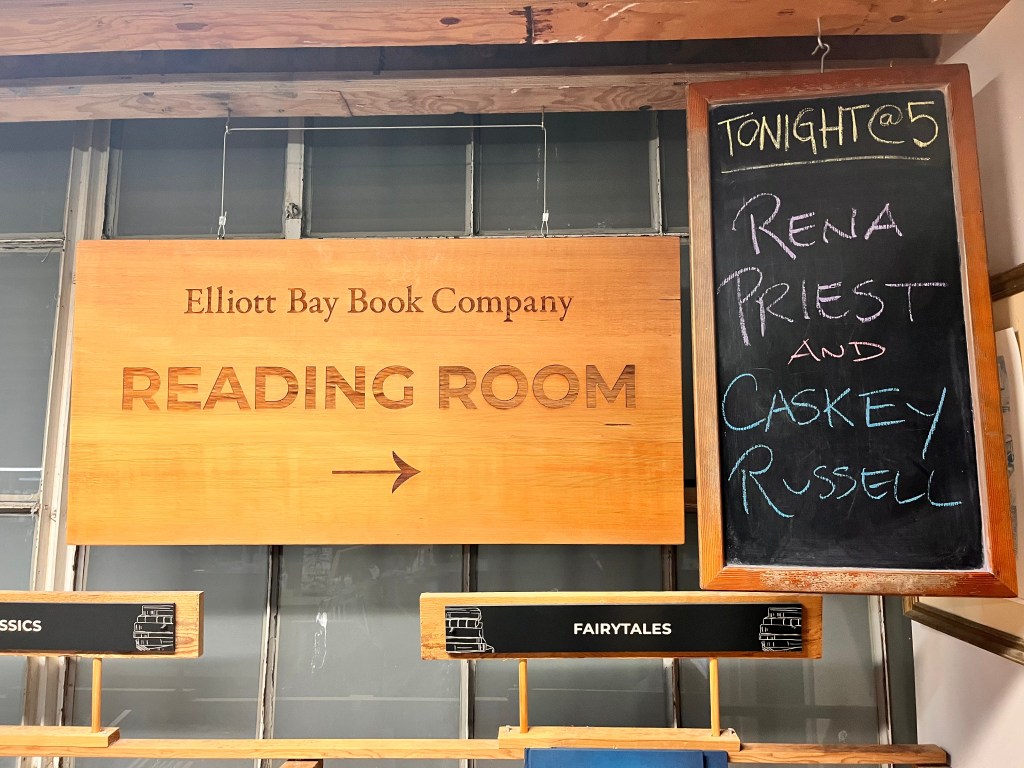 Elliott Bay Book Company
READING ROOM
TONIGHT@5
RENA
PRIEST
AND
CASKEY
RUSSELL
SSICS
FAIRYTALES